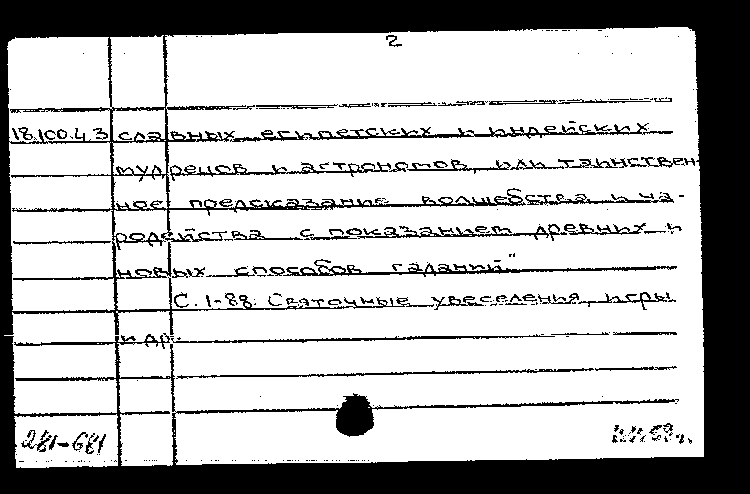 2
18.100.4.3 славных египетских и индейских
мудрецов и астрономов, или таинствен-
ное предсказание волшебства и ча-
родейства с показанием древних и
новых способов гаданий"
С. 1-88: Святочные увеселения, игры
и др.
281-681